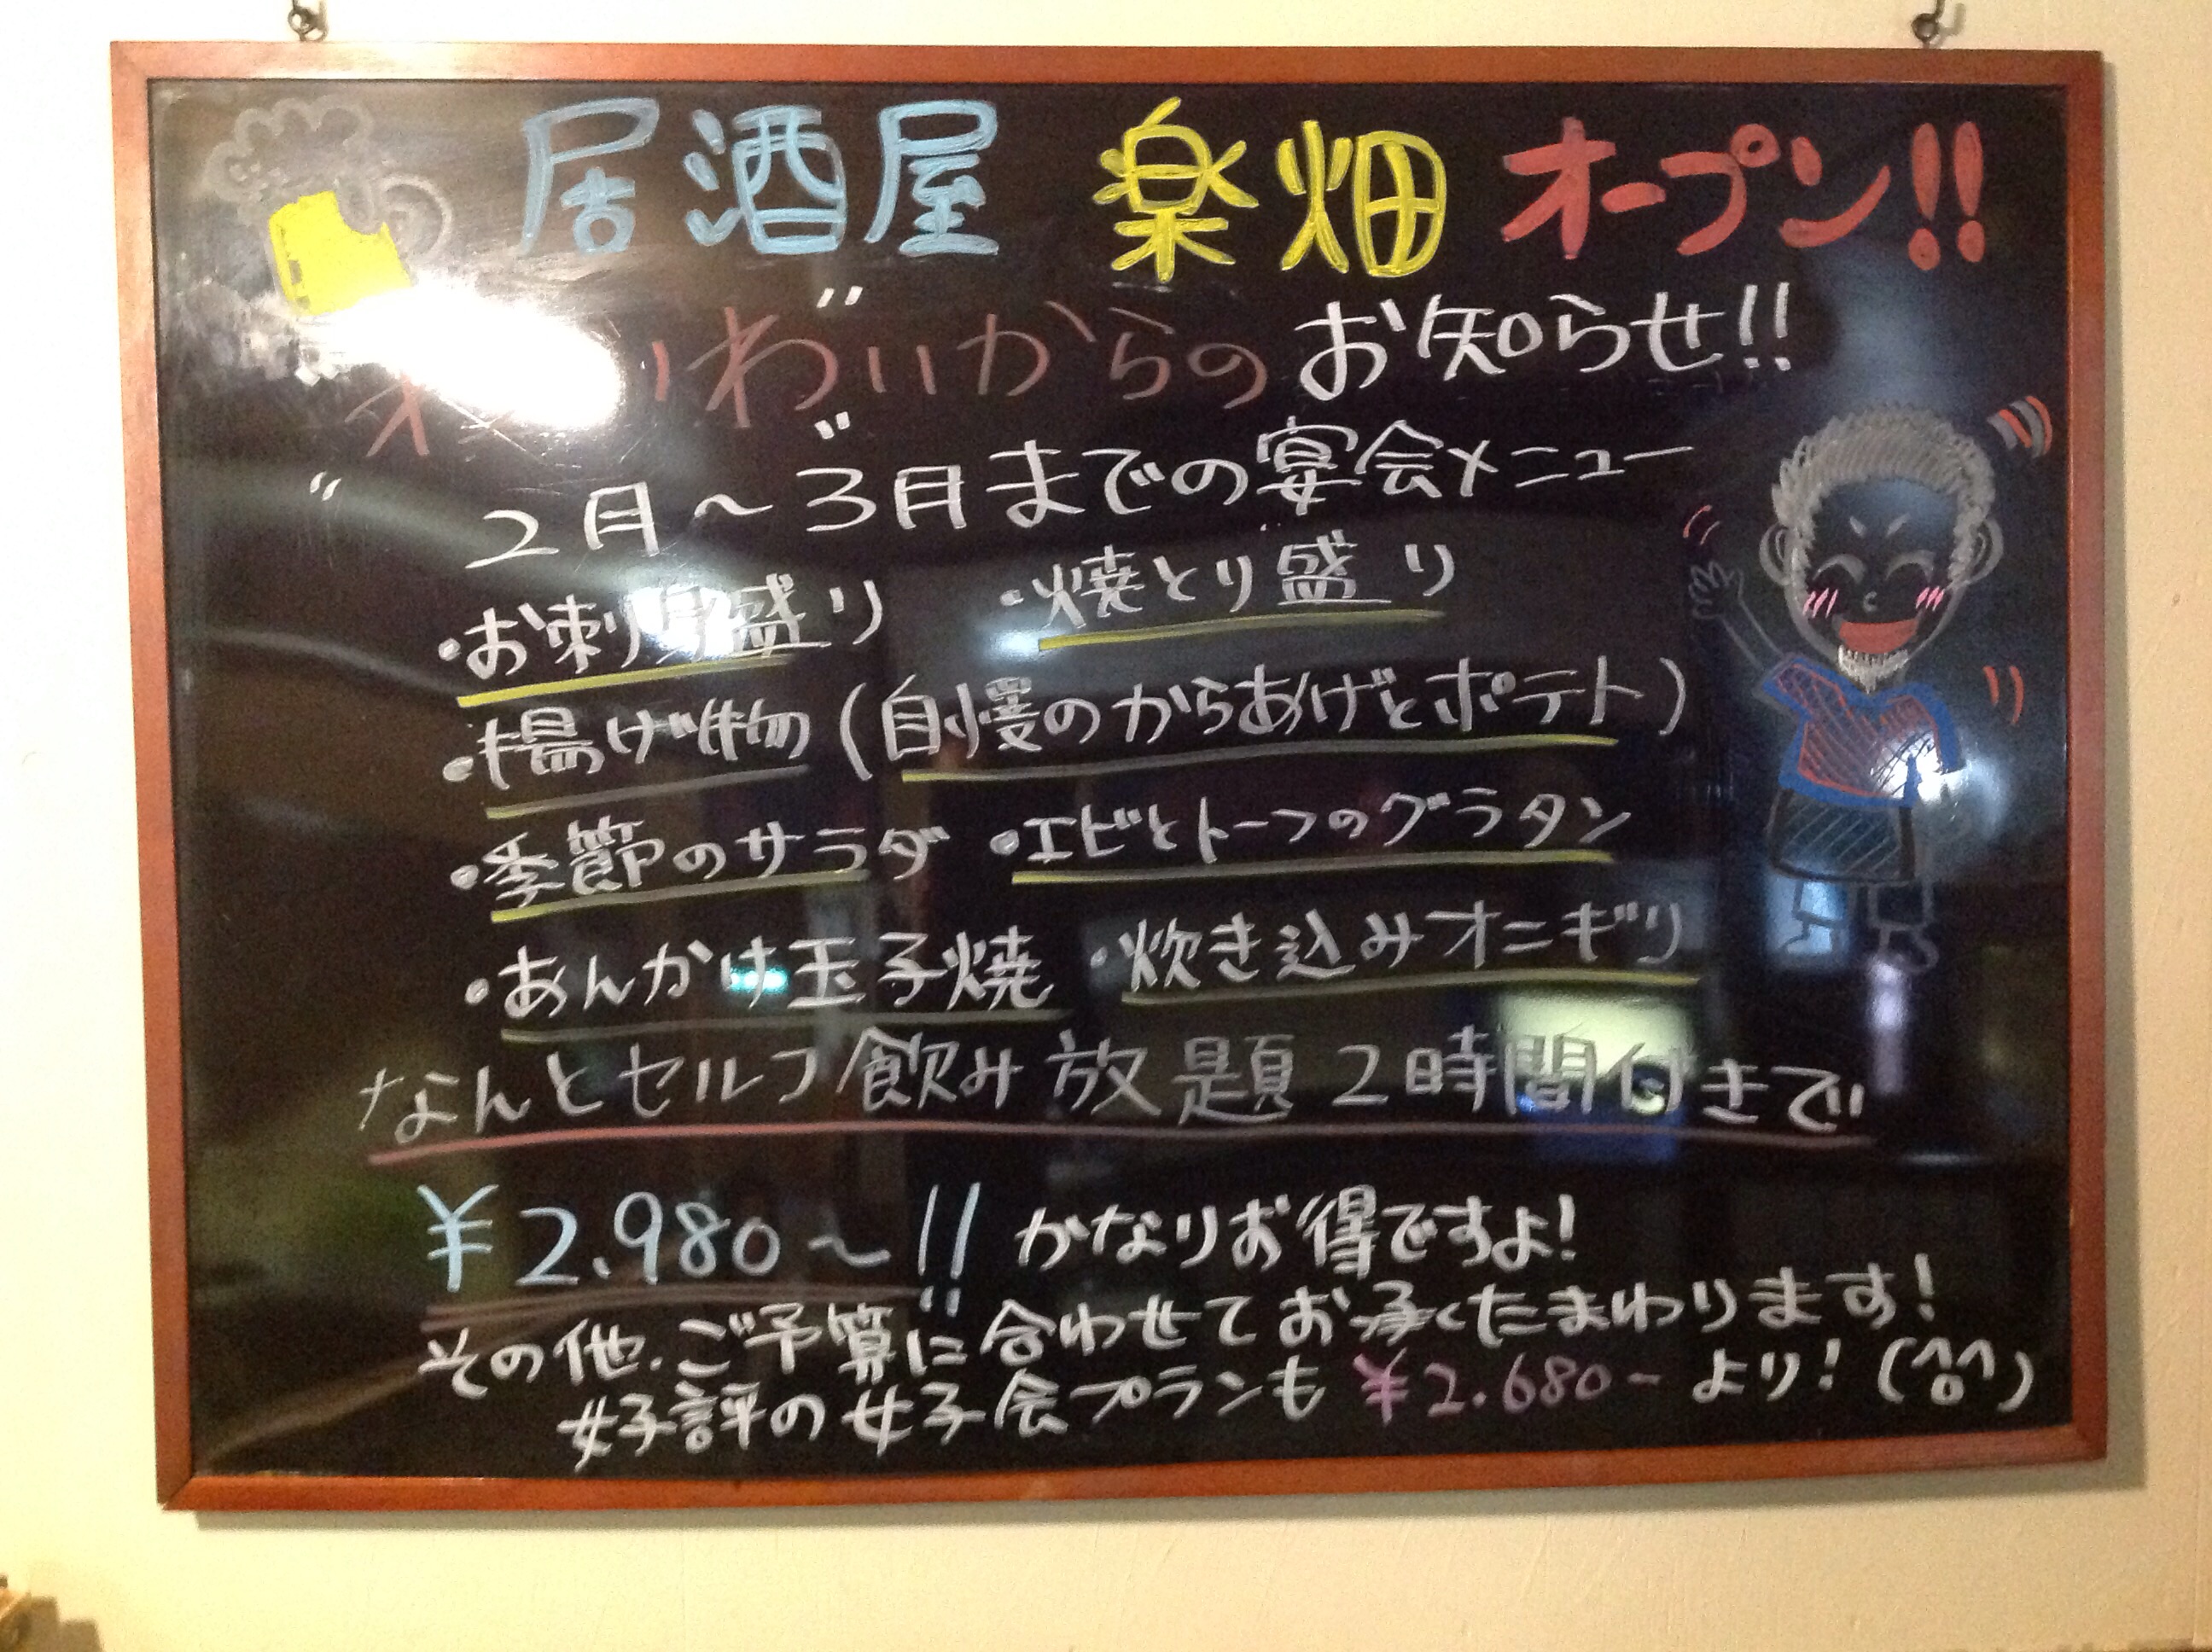 居酒屋 楽畑 オープン!!
"わいわい"からのお知らせ!!
"2月～3月までの宴会メニュー
・お刺身盛り ・焼とり盛り
・揚げ物(自慢のからあげとポテト)
・季節のサラダ ・エビとトーフのグラタン
・あんかけ玉子焼 ・炊き込みオニギリ
なんとセルフ飲み放題2時間付きで
¥2.980～!! かなりお得ですよ!
その他.ご予算に合わせてお承くたまわります!
好評の女子会プランも ¥2.680～より!(^o^)